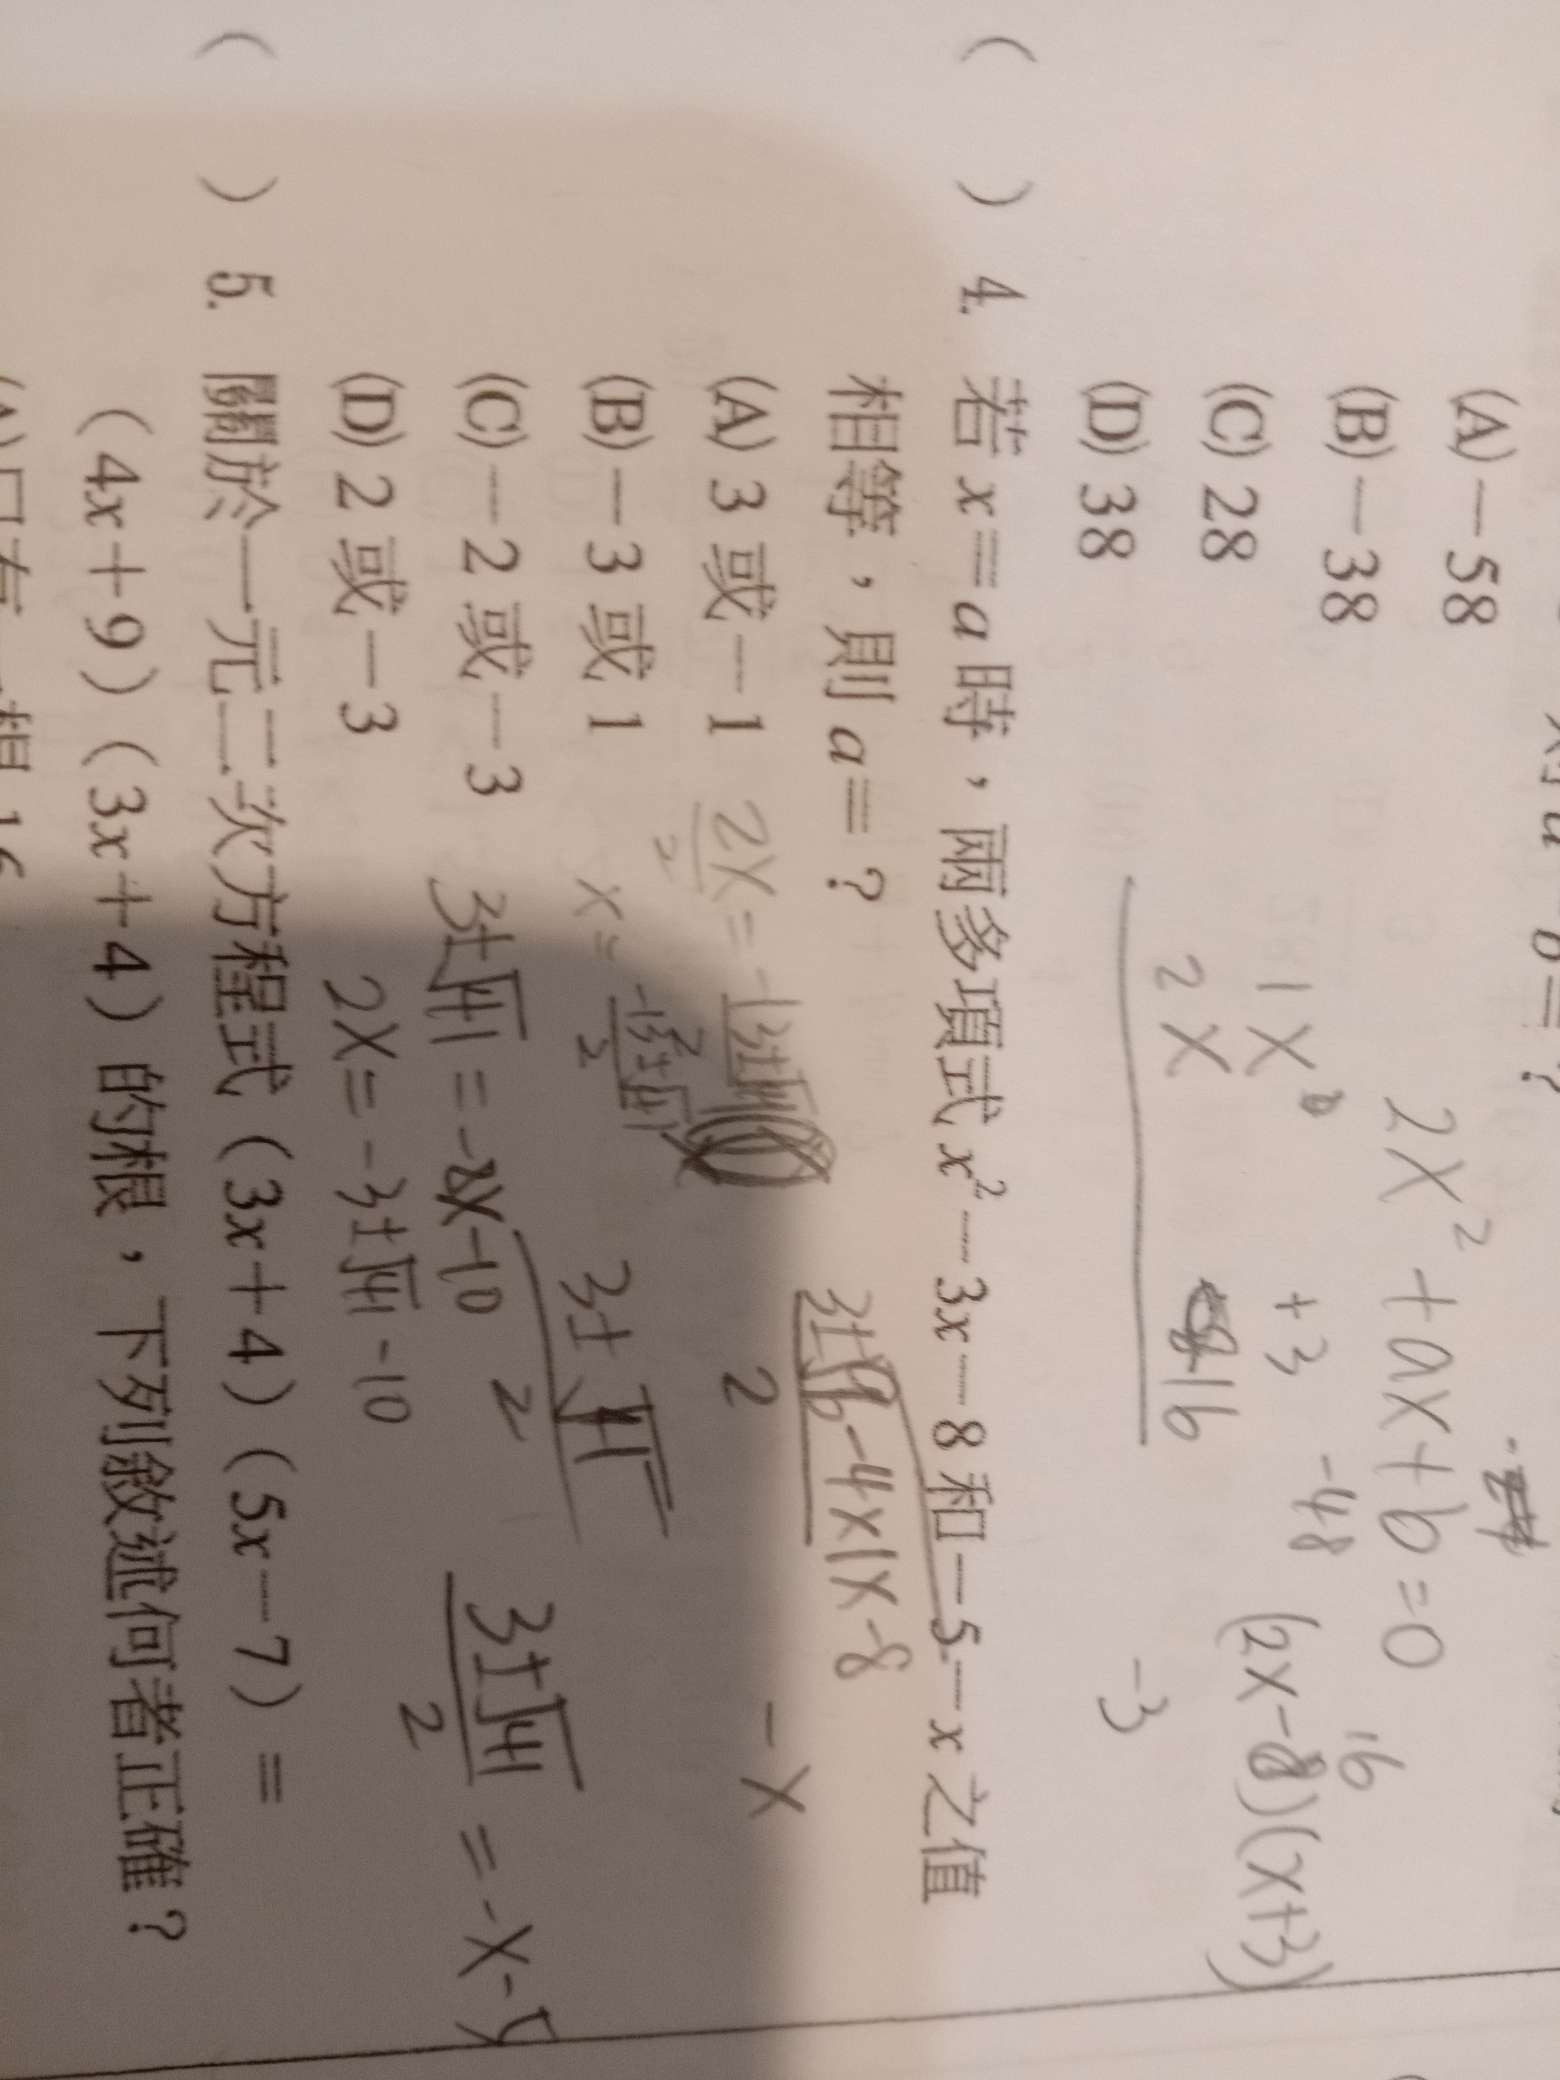 (A)－58
(B)－38
(C) 28
(D) 38
2x²+ax+b=0
1x +3 -48
2x 16
16
(2x-8)(x+3)
-3
( ) 4. 若 x＝a 時，兩多項式 x²－3x－8 和－5－x 之值
相等，則 a＝？
(A) 3 或－1
(B)－3 或 1
(C)－2 或－3
(D) 2 或－3
-4x1x-8
2
-x
3±√41
2
3±√41 = -2x-10
2x=-3±√41-10
3±√41 = -x-5
2
( ) 5. 關於一元二次方程式（3x＋4）（5x－7）＝
（4x＋9）（3x＋4）的根，下列敘述何者正確？